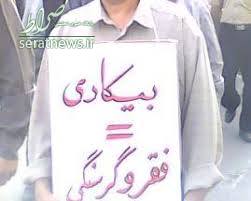 صراط
seratnews.ir
بیکاری
=
فقر و گرسنگی